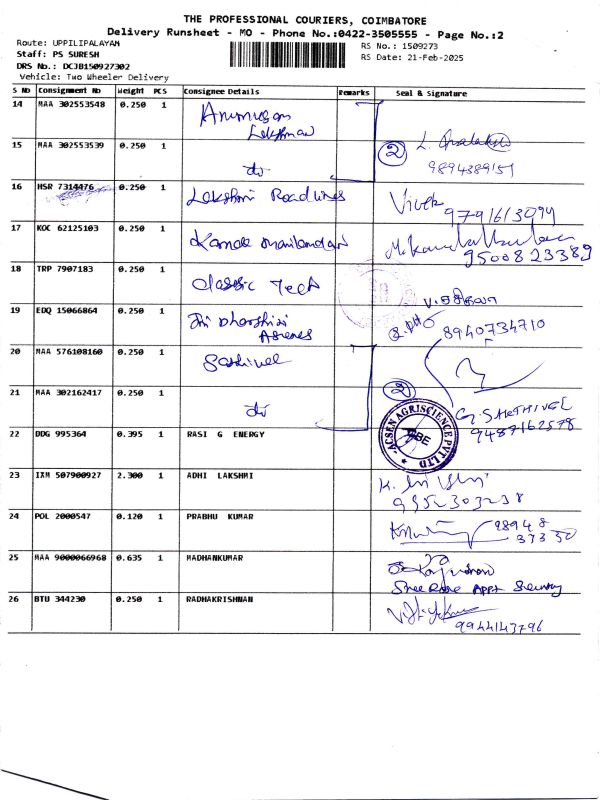 THE PROFESSIONAL COURIERS, COIMBATORE
Delivery Runsheet - MO - Phone No.:0422-3505555 - Page No.:2
Route: UPPILIPALAYAM
Staff: PS SURESH
DRS No.: DCJB150927302
Vehicle: Two Wheeler Delivery
RS No.: 1509273
RS Date: 21-Feb-2025
S No Consignment No Weight PCS Consignee Details Remarks Seal & Signature
14 MAA 302553548 0.250 1
Lakshman
15 MAA 302553539 0.250 1 do 2 L.
9894389151
16 HSR 7314476 0.250 1 Lakshmi Roadlines Vivek
9791613094
17 KOC 62125103 0.250 1 Kamala Manikandan
9500823389
18 TRP 7907183 0.250 1 Classic Tech
19 EDQ 15066864 0.250 1 Sri Dharshini
8940734710
20 MAA 576108160 0.250 1 Sakthivel
21 MAA 302162417 0.250 1 do 2
G. SAKTHIVEL
9487162578
ACSEN AGRISCIENCE PVT LTD
CBE
22 DDG 995364 0.395 1 RASI G ENERGY
23 IXM 507900927 2.300 1 ADHI LAKSHMI
K.
9952303238
24 POL 2000547 0.120 1 PRABHU KUMAR
98948
37350
25 MAA 9000066968 0.635 1 MADHANKUMAR
26 BTU 344230 0.250 1 RADHAKRISHNAN
9944143796